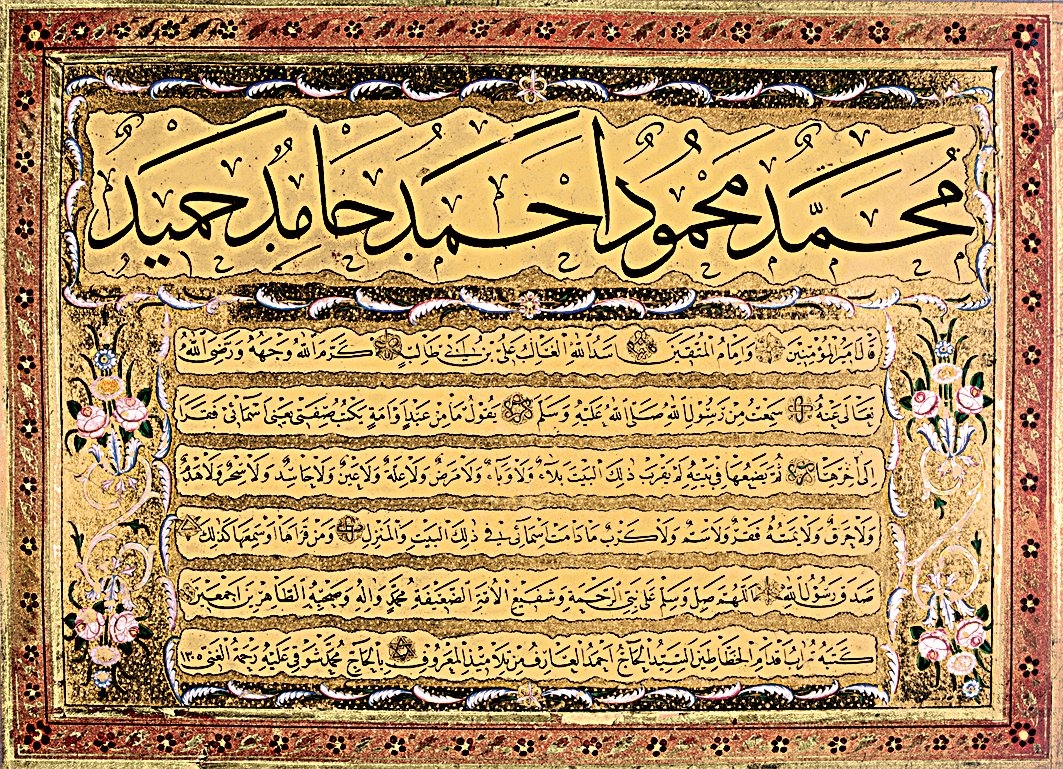 مُحَمَّدٌ مَحْمُودٌ اَحْمَدُ حَامِدٌ حَمِيدٌ
قَالَ اَمِيرُ الْمُؤْمِنِينَ وَاِمَامُ الْمُتَّقِينَ اَسَدُ اللّٰهِ الْغَالِبُ عَلِىُّ بْنُ اَبِى طَالِبٍ كَرَّمَ اللّٰهُ وَجْهَهُ وَرَضِىَ اللّٰهُ
تَعَالٰى عَنْهُ سَمِعْتُ مِنْ رَسُولِ اللّٰهِ صَلَّى اللّٰهُ عَلَيْهِ وَسَلَّمَ يَقُولُ مَا مِنْ عَبْدٍ وَاَمَةٍ يَكْتُبُ صِفَتِى يَعْنِى اَسْمَآئِى فَقَرَاَ
اِلٰى اٰخِرِهَا ثُمَّ يَضَعُهَا فِى بَيْتِهِ لَمْ يَقْرَبْ ذٰلِكَ الْبَيْتَ بَلَاءٌ وَلَا وَبَاءٌ وَلَا مَرَضٌ وَلَا عِلَّةٌ وَلَا عَيْنٌ وَلَا حَاسِدٌ وَلَا سِحْرٌ وَلَا هَدْمٌ
وَلَا حَرَقٌ وَلَا يَمَسُّهُ فَقْرٌ وَلَا سَهْمٌ وَلَا كَرْبٌ مَادَامَتْ اَسْمَآئِى فِى ذٰلِكَ الْبَيْتِ وَالْمَنْزِلِ وَمَنْ قَرَاَهَا اَوْ سَمِعَهَا كَذٰلِكَ
صَدَقَ رَسُولُ اللّٰهِ اَللّٰهُمَّ صَلِّ وَسَلِّمْ عَلٰى نَبِىِّ الرَّحْمَةِ وَشَفِيعِ الْاُمَّةِ الضَّعِيفَةِ مُحَمَّدٍ وَاٰلِهِ وَصَحْبِهِ الطَّاهِرِينَ اَجْمَعِينَ
كَتَبَهُ اَقْدَامِ الْخَطَّاطِينَ السَّيِّدُ الْحَاجُّ اَحْمَدُ الْعَارِفُ مِنْ تَلَامِيذِ الْمَعْرُوفِ بِالْحَاجِّ مُحَمَّدْ شَوْقِى عَلَيْهِ رَحْمَةُ الْغَنِىِّ